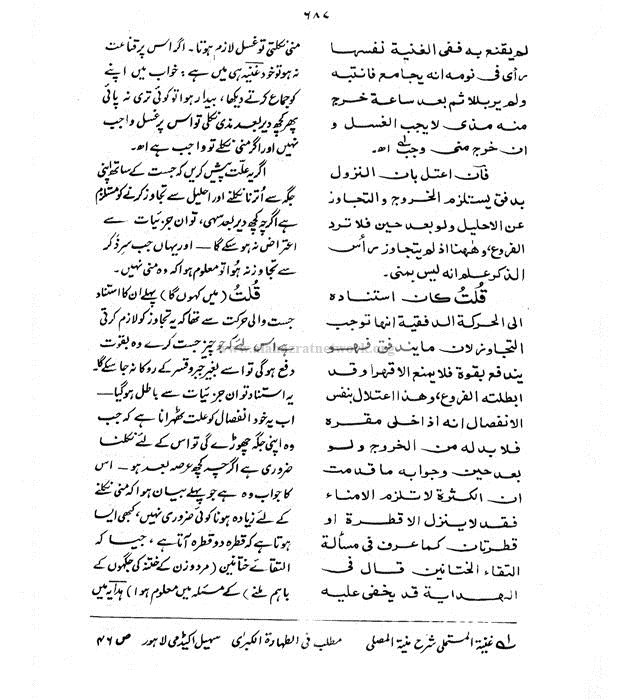 ۶۸۷
لم یقنع بہ ففی الغنیۃ نفسہا
رأی فی نومہ انہ یجامع فانتبہ
ولم یربللا ثم بعد ساعۃ خرج
منہ مذی لایجب الغسل و
ان خرج منی وجب اھ۔
فان اعتل بان النزول
بدفق یستلزم الخروج والتجاوز
عن الاحلیل ولو بعد حین فلا ترد
الفروع، وھٰھنا اذ لم یتجاوز رأس
الذکر علم انہ لیس بمنی۔
قُلتُ کان استنادہ
الی الحرکۃ الدفقیۃ انھا توجب
التجاوز لان ما یندفق فھو
یندفع بقوۃ فلا یمنع الا قھرا وقد
ابطلتہ الفروع، وھذا اعتلال بنفس
الانفصال انہ اذا خلی مقرہ
فلا بد لہ من الخروج ولو
بعد حین وجوابہ ما قدمت
ان الکثرۃ لا تلزم الامناء
فقد لا ینزل الا قطرۃ او
قطرتان کما عرف فی مسألۃ
التقاء الختانین قال فی
الھدایۃ قد یخفی علیہ
منی نکلتی تو غسل لازم ہوتا۔ اگر اس پر قناعت
نہ ہو تو خود غنیہ ہی میں ہے: خواب میں اپنے
کو جماع کرتے دیکھا، بیدار ہوا تو کوئی تری نہ پائی
پھر کچھ دیر بعد مذی نکلی تو اس پر غسل واجب
نہیں اور اگر منی نکلے تو واجب ہے اھ۔
اگر یہ علّت پیش کریں کہ جست کے ساتھ اپنی
جگہ سے اُترنا نکلنے اور احلیل سے تجاوز کرنے کو مستلزم
ہے اگرچہ کچھ دیر بعد سہی، تو ان جزئیات سے
اعتراض نہ ہوسکے گا — اور یہاں جب سر ذکر
سے تجاوز نہ ہُوا تو معلوم ہوا کہ وہ منی نہیں۔
قُلتُ (میں کہوں گا) پہلے ان کا استناد
جست والی حرکت سے تھا کہ یہ تجاوز کو لازم کرتی
ہے اس لئے کہ جو چیز جست کرے وہ بقوت
دفع ہوگی تو اسے بغیر جبر و قسر کے روکا نہ جاسکے گا۔
یہ استناد تو ان جزئیات سے باطل ہوگیا —
اب یہ خود انفصال کو علت ٹھہرانا ہے کہ جب
وہ اپنی جگہ چھوڑے گی تو اس کے لئے نکلنا
ضروری ہے اگرچہ کچھ عرصہ بعد ہو — اس
کا جواب وہ ہے جو پہلے بیان ہوا کہ منی نکلنے
کے لئے زیادہ ہونا کوئی ضروری نہیں، کبھی ایسا
ہوتا ہے کہ قطرہ دو قطرہ آتا ہے، جیسا کہ
التقائے ختانین (مرد و زن کے ختنہ کی جگہوں کے
باہم ملنے) کے مسئلہ میں معلوم ہوا) ہدایہ میں
لہ غنیۃ المستملی شرح منیۃ المصلی مطلب فی الطہارۃ الکبرٰی سہیل اکیڈمی لاہور ص ۴۶